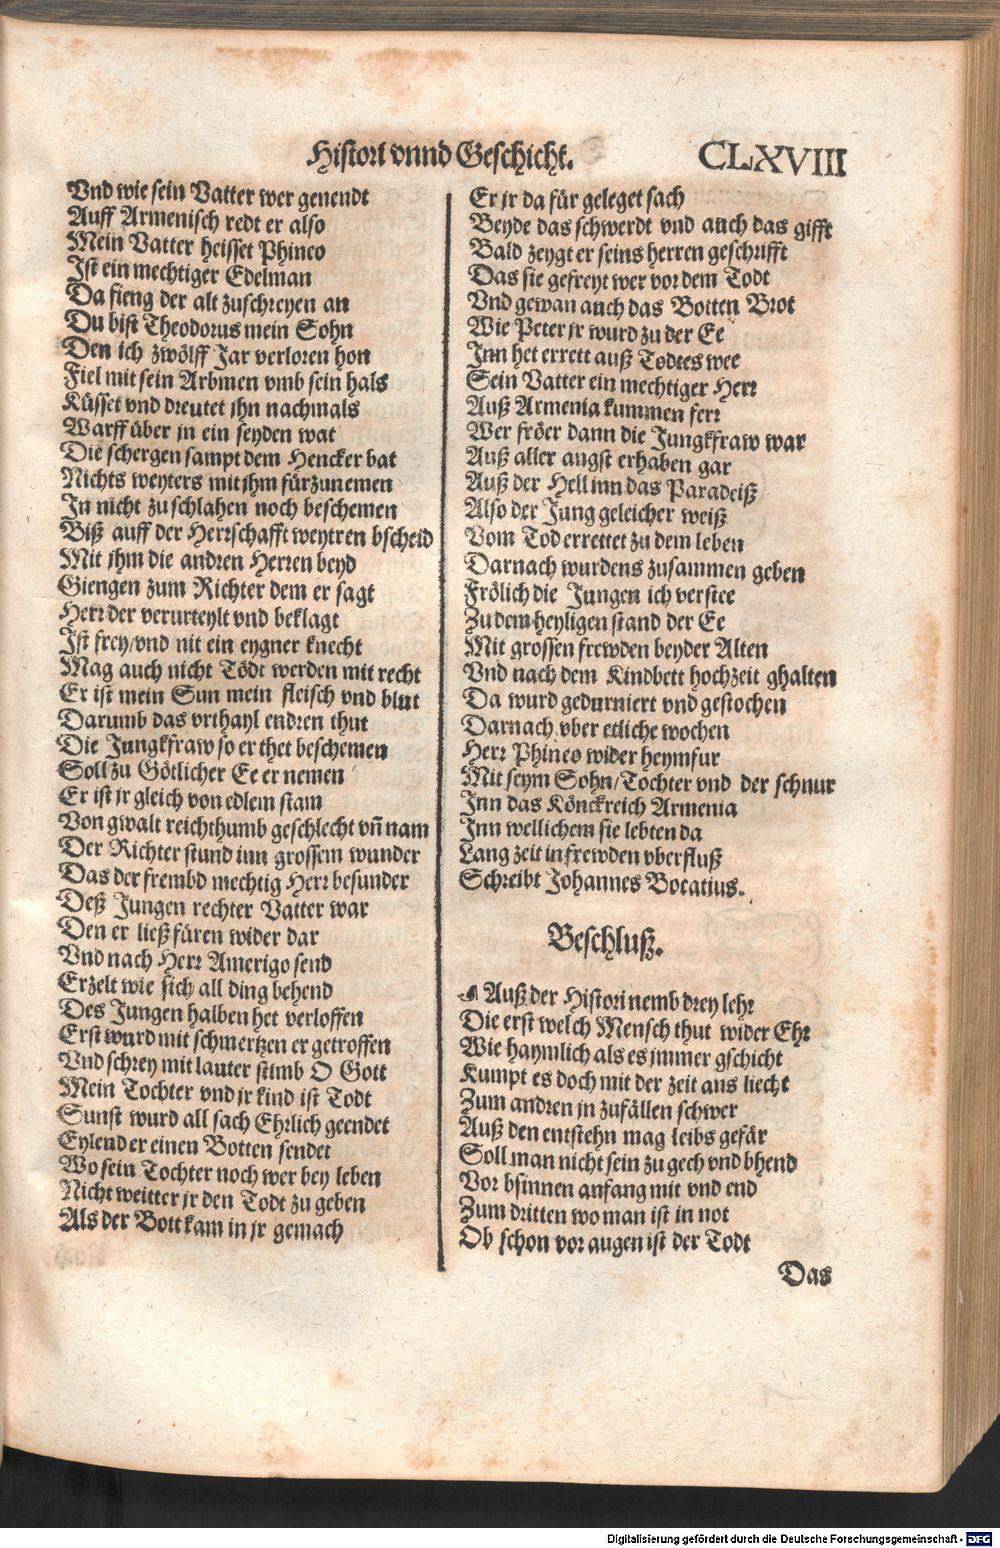 Histori vnnd Geschicht. CLXVIII
Vnd wie sein Vatter wer genendt
Auff Armenisch redt er also
Mein Vatter heisset Phineo
Ist ein mechtiger Edelman
Da fieng der alt zuschreyen an
Du bist Theodorus mein Sohn
Den ich zwölff Jar verloren hon
Fiel mit sein Arbmen vmb sein hals
Küsset vnd dreutet jhn nachmals
Warff über jn ein seyden wat
Die schergen sampt dem Hencker bat
Nichts weyters mit jhm fürzunemen
In nicht zu schlahen noch beschemen
Biß auff der Herrschafft weytren bscheid
Mit jhm die andren Herren beyd
Giengen zum Richter dem er sagt
Herr der verurteylt vnd beklagt
Ist frey/vnd nit ein eygner knecht
Mag auch nicht Tödt werden mit recht
Er ist mein Sun mein fleisch vnd blut
Darumb das vrthayl endren thut
Die Jungkfraw so er thet beschemen
Soll zu Götlicher Ee er nemen
Er ist jr gleich von edlem stam
Von gwalt reichthumb geschlecht vñ nam
Der Richter stund inn grossem wunder
Das der frembd mechtig Herr besunder
Deß Jungen rechter Vatter war
Den er ließ füren wider dar
Vnd nach Herr Amerigo send
Erzelt wie sich all ding behend
Des Jungen halben het verloffen
Erst wurd mit schmertzen er getroffen
Vnd schrey mit lauter stimb O Gott
Mein Tochter vnd jr kind ist Todt
Sunst wurd all sach Ehrlich geendet
Eylend er einen Botten sendet
Wo sein Tochter noch wer bey leben
Nicht weitter jr den Todt zu geben
Als der Bott kam in jr gemach
Er jr da für geleget sach
Beyde das schwerdt vnd auch das gifft
Bald zeygt er seins herren geschrifft
Das sie gefreyt wer vor dem Todt
Vnd gewan auch das Botten Brot
Wie Peter jr wurd zu der Ee
Inn het errett auß Todtes wee
Sein Vatter ein mechtiger Herr
Auß Armenia kummen ferr
Wer fröer dann die Jungkfraw war
Auß aller angst erhaben gar
Auß der Hell inn das Paradeiß
Also der Jung geleicher weiß
Vom Tod errettet zu dem leben
Darnach wurdens zusammen geben
Frölich die Jungen ich verstee
Zu dem heyligen stand der Ee
Mit grossen frewden beyder Alten
Vnd nach dem Kindbett hochzeit ghalten
Da wurd gedurniert vnd gestochen
Darnach vber etliche wochen
Herr Phineo wider heymfur
Mit seym Sohn/Tochter vnd der schnur
Inn das Könckreich Armenia
Inn wellichem sie lebten da
Lang zeit in frewden vberfluß
Schreibt Johannes Bocatius.
Beschluß.
Auß der Histori nemb drey lehr
Die erst welch Mensch thut wider Ehr
Wie haymlich als es jmmer gschicht
Kumpt es doch mit der zeit ans liecht
Zum andren jn zufällen schwer
Auß den entstehn mag leibs gefär
Soll man nicht sein zu gech vnd bhend
Vor bsinnen anfang mit vnd end
Zum dritten wo man ist in not
Ob schon vor augen ist der Todt
Das
Digitalisierung gefördert durch die Deutsche Forschungsgemeinschaft - DFG